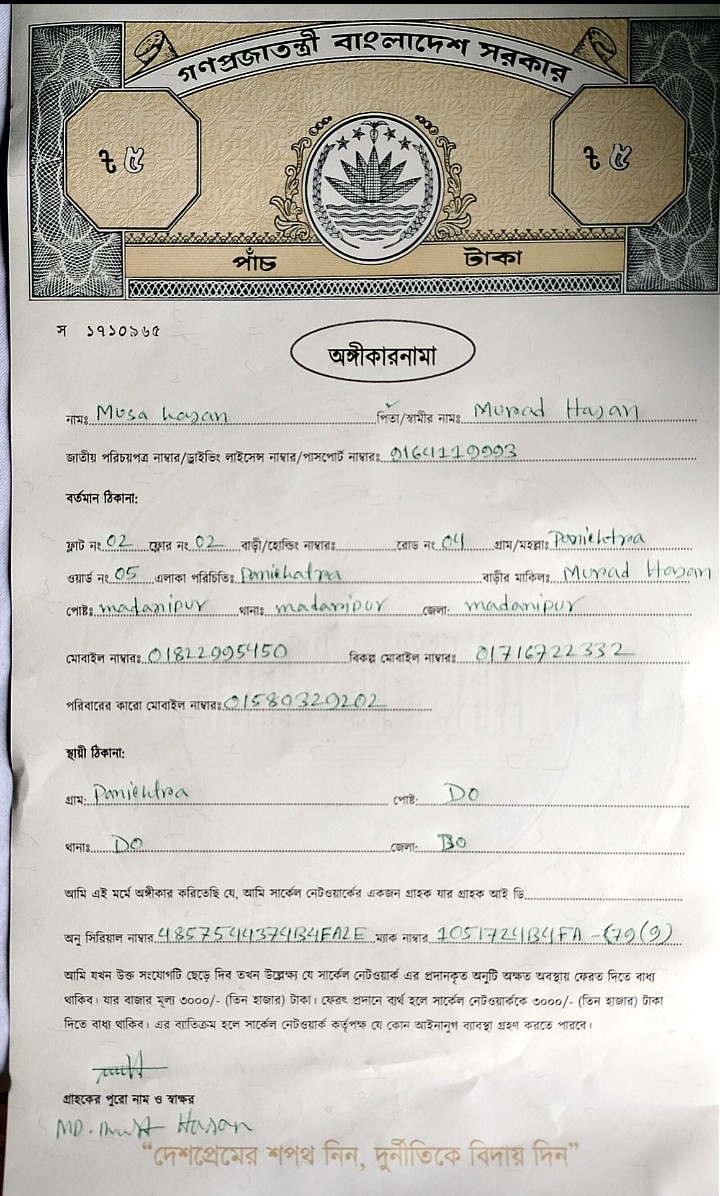 গণপ্রজাতন্ত্রী বাংলাদেশ সরকার
৳ ৫ ৳ ৫
পাঁচ টাকা
স ১৭১০৯৬৫
অঙ্গীকারনামা
নামঃ Musa hasan পিতা/স্বামীর নামঃ Murad Hasan
জাতীয় পরিচয়পত্র নাম্বার/ড্রাইভিং লাইসেন্স নাম্বার/পাসপোর্ট নাম্বারঃ 9164119993
বর্তমান ঠিকানা:
ফ্লাট নং 02 ফ্লোর নং 02 বাড়ী/হোল্ডিং নাম্বারঃ রোড নং 04 গ্রাম/মহল্লাঃ
ওয়ার্ড নং 05 এলাকা পরিচিতিঃ বাড়ীর মালিকঃ Murad Hasan
পোষ্টঃ madaripur থানাঃ madaripur জেলা: madaripur
মোবাইল নাম্বারঃ 01822995450 বিকল্প মোবাইল নাম্বারঃ 01716722332
পরিবারের কারো মোবাইল নাম্বারঃ 01580329202
স্থায়ী ঠিকানা:
গ্রাম: পোষ্ট: DO
থানাঃ DO জেলা: DO
আমি এই মর্মে অঙ্গীকার করিতেছি যে, আমি সার্কেল নেটওয়ার্কের একজন গ্রাহক যার গ্রাহক আই ডি
অনু সিরিয়াল নাম্বার 4857544374B4FA2E ম্যাক নাম্বার 1051724B4FA
আমি যখন উক্ত সংযোগটি ছেড়ে দিব তখন উল্লেক্ষ্য যে সার্কেল নেটওয়ার্ক এর প্রদানকৃত অনুটি অক্ষত অবস্থায় ফেরত দিতে বাধ্য
থাকিব। যার বাজার মূল্য ৩০০০/- (তিন হাজার) টাকা। ফেরৎ প্রদানে ব্যর্থ হলে সার্কেল নেটওয়ার্ককে ৩০০০/- (তিন হাজার) টাকা
দিতে বাধ্য থাকিব। এর ব্যতিক্রম হলে সার্কেল নেটওয়ার্ক কর্তৃপক্ষ যে কোন আইনানুগ ব্যাবস্থা গ্রহণ করতে পারবে।
গ্রাহকের পুরো নাম ও স্বাক্ষর
MD. Hasan
“দেশপ্রেমের শপথ নিন, দুর্নীতিকে বিদায় দিন”